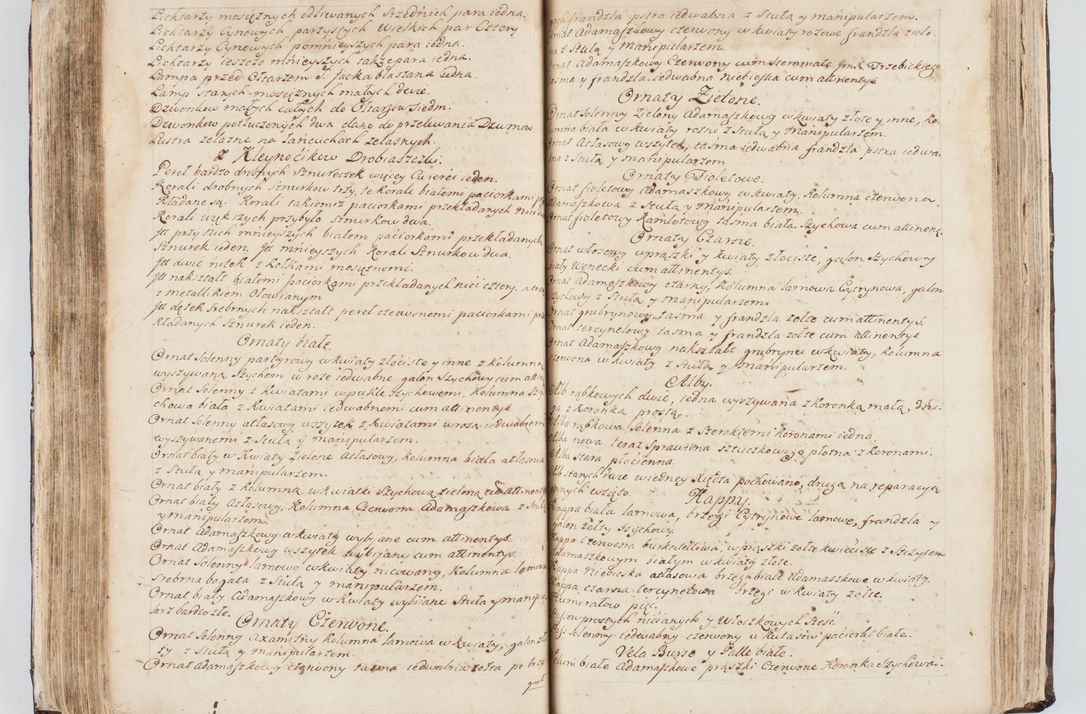 Lichtarzy mosięznych odliwanych Srzednich para iedna.
Lichtarzy Cynowych partyiych Wielkich par Cztery
Lichtarzy Cynowych pomnieyszych para iedna.
Lichtarzy ieszcze mnieyszych takze para iedna.
Lampa przed Ołtarzem S. Jacka blaszana iedna.
Lamp starych mosięznych małych dwie.
Dzwonkow małych całych do Ołtarzow siedm.
Dzwonkow potłuczonych dwa dano do przelewania Dzwonow.
Lustra zelazne na Łancuchach zelaznych.
Kleynocikow Drobiaszczki.
Pereł bardzo drobnych Sznureczek więcey Cwierci ieden.
Korali drobnych Sznurkow trzy, te korale białemi paciorkami
kładane są. Korali takiemiz paciorkami przekładanych
Korali większych przybyło Sznurkow dwa.
Jtt przy nich mnieyszych białem paciorkami przekładanych
Sznurek ieden. Jtt mnieyszych Korali Sznurkow dwa.
Jtt dwie nitek z Kółkami mosięznemi.
Jtt nakształt białemi paciorkami przekładanych nici cztery,
z metallikiem Ołowianym
Jtt dętek Srebrnych nakształt pereł czerwonemi paciorkami
kładanych Sznurek ieden.
Ornaty białe.
Ornat Solenny partyrowy w kwiaty złociste y inne z kolumną
wyszywaną Szychem w roze iedwabne galon Szychowy cum att.
Ornat Solenny z kwiatami wpukłe Szychowemi, Kolumna
chowa biała z Kwiatami iedwabnemi cum attinentys
Ornat Solenny atłasowy wszytek z Kwiatami wroza iedwabiem
wyszywanemi z Stułą y manipularzem.
Ornat biały w Kwiaty Zielone Atłasowy, kolumna biała atłasowa
z Stułą y manipularzem.
Ornat biały z kolumną w kwiatki Szychową zieloną cum attinent
Ornat biały Atłasowy, Kolumna Czerwona Adamaszkowa z Stułą
y manipularzem.
Ornat Adamaszkowy w kwiaty wybiane cum attinentys.
Ornat Adamaszkowy wszytek wybiiany cum attinentys.
Ornat Solenny lamowy w kwiaty nicowany, Kolumna lamowa
Srebrna bogata z Stułą y manipularzem.
Ornat biały Adamaszkowy w Kwiaty wybiiane Stuła y manipu
larz bardzo złe.
Ornaty Czerwone.
Ornat Solenny axamitny Kolumna lamowa w kwiaty, galon zło
ty z Stułą y manipularzem.
Ornat Adamaszkowy czerwony tasma iedwabna zołta po brze
frandzla pstra iedwabna z Stułą y manipularzem.
Ornat Adamaszkowy czerwony w kwiaty rozowe frandzla zielo
na z Stułą y Manipularzem.
Ornat Adamaszkowy Czerwony cum Stemmate JmX. Trzebickiego
tasma y frandzla iedwabna Niebieska cum attinentys
Ornaty Zielone.
Ornat Solenny Zielony Adamaszkowy w kwiaty złote y inne, ko
lumna biała w kwiaty rozne z Stułą y Manipularzem.
Ornat Atłasowy wszytek, tasma iedwabna frandzla pstra iedwa
na z Stułą y manipularzem
Ornaty Fioletowe.
Ornat fioletowy Adamaszkowy w kwiaty, Kolumna czerwona
Adamaszkowa z Stułą y Manipularzem.
Ornat fioletowy Kamletowy tasma biała Szychowa cum attinen.
Ornaty Czarne.
Ornat włosowy wprąszki y kwiaty złociste, galon Szychowy
biały Wenecki cum attinentys.
Ornat Adamaszkowy czarny, Kolumna lamowa Cytrynowa, galon
Szychowy z Stułą y manipularzem.
Ornat grubrynowy tasma y frandzla zołte cum attinentys.
Ornat tercynelowy tasma y frandzla zołte cum attinentys
Ornat Adamaszkowy nakształt grubrynu w kwiaty, kolumna
czerwona w kwiaty z Stułą y manipularzem.
Alby.
Alb rąbkowych dwie, iedna wyszywana z koronką małą, dru
ga z Koronką prostą.
Alba rąbkowa Solenna z Szerokiemi koronami iedna.
Alba nowa teraz Sprawiona Sztuczkowego płotna z koronami.
Alba Stara płocienna.
Alb starych dwie w iedney Xiędza pochowano, drugą na reparacyą
innych wzięto.
Kappy.
Kappa biała lamowa, brzegi Cytrynowe lamowe, frandzla y
galon zołty Szychowy.
Kappa Czerwona burkatellowa, wprąszki zołte kwieciste z Szczytem
Adamaszkowym białym w kwiaty złote.
Kappa Niebieska atłasowa brzegi białe Adamaszkowe w kwiaty.
Kappa czarna tercynelowa brzegi w kwiaty zołte.
Humerałow pięć.
Pasow prostych nicianych y Włoczkowych Sześć.
Pas Solenny iedwabny czerwony u kutasow paciorki białe.
Vela Bursse y Palle białe.
Velum białe Adamaszkowe prążki Czerwone Koronka Szychowa.